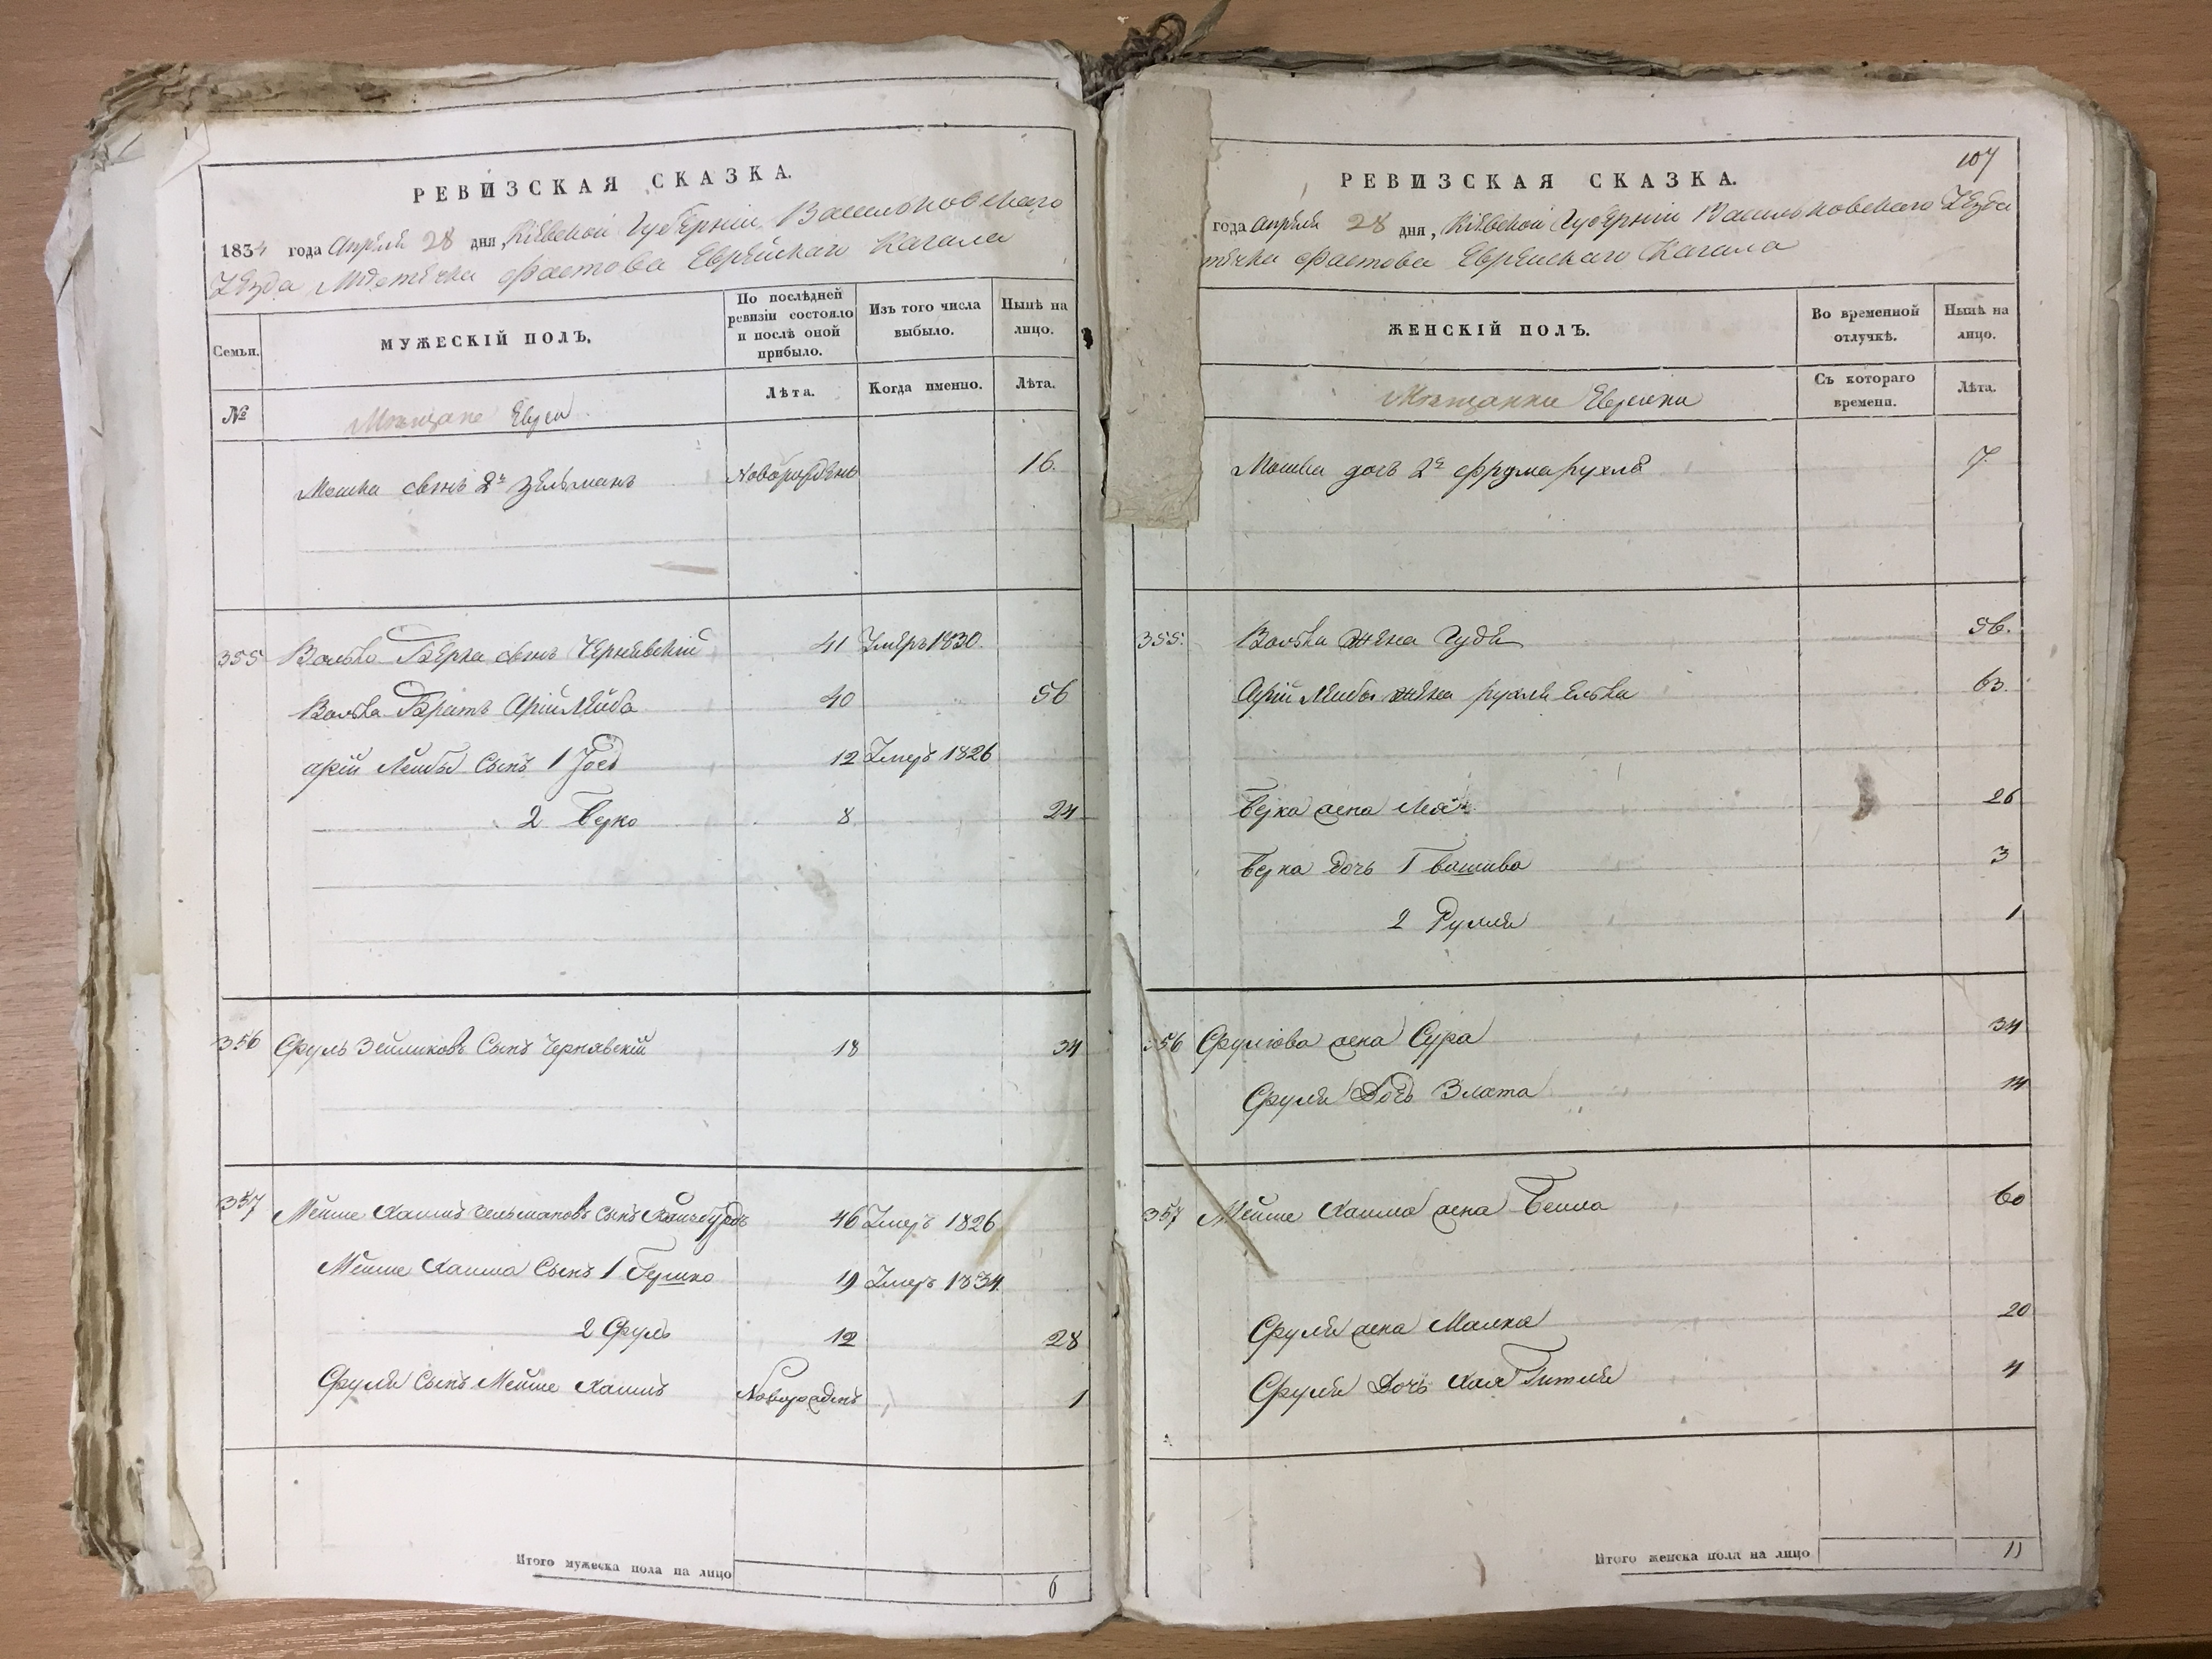 РЕВИЗСКАЯ СКАЗКА.
1834 года Апреля 28 дня, Кіевской Губерніи Васильковскаго
Уезда Местечка Фастова Еврейскаго Кагала
Семьи.
МУЖЕСКІЙ ПОЛЪ.
По послѣдней ревизіи состояло и послѣ оной прибыло.
Изъ того числа выбыло.
Нынѣ на лицо.
№
Мещане Евреи
Лѣта.
Когда именно.
Лѣта.
Мошка сынъ 2й Зельманъ Новорожденъ 16.
355 Волька Берка сынъ Чернявскій 41 Умеръ 1830.
Волька Братъ Арій Лейба 40 56
Арій Лейбы Сынъ 1 Іосъ 12 Умеръ 1826
2 Берко 8 24
356 Сруль Зейликовъ Сынъ Чернявскій 18 34
357 Мейше Хаимъ Зельмановъ Сынъ 46 Умеръ 1826
Мейше Хаима Сынъ 1 Гершко 19 Умеръ 1834
2 Сруль 12 28
Сруля Сынъ Мейше Хаимъ Новорожденъ 1
Итого мужеска пола на лицо 6
107
РЕВИЗСКАЯ СКАЗКА.
года Апреля 28 дня, Кіевской Губерніи Васильковскаго Уезда
течка Фастова Еврейскаго Кагала
ЖЕНСКІЙ ПОЛЪ.
Во временной отлучкѣ.
Нынѣ на лицо.
Мещанки Еврейки
Съ котораго времени.
Лѣта.
Мошка дочь 2я Фрума Рухля 7.
355. Волька жена Гудя 56.
Арій Лейбы жена Рухля Елька 63.
Берка жена Лея 26
Берка дочь 1 Башива 3
2 Рухля 1
356 Срулова жена Сура 34
Сруля Дочь Злата 14
357 Мейше Хаима жена Бейла 60
Сруля жена Малка 20
Сруля Дочь Хая Гитля 4
Итого женска пола на лицо 11